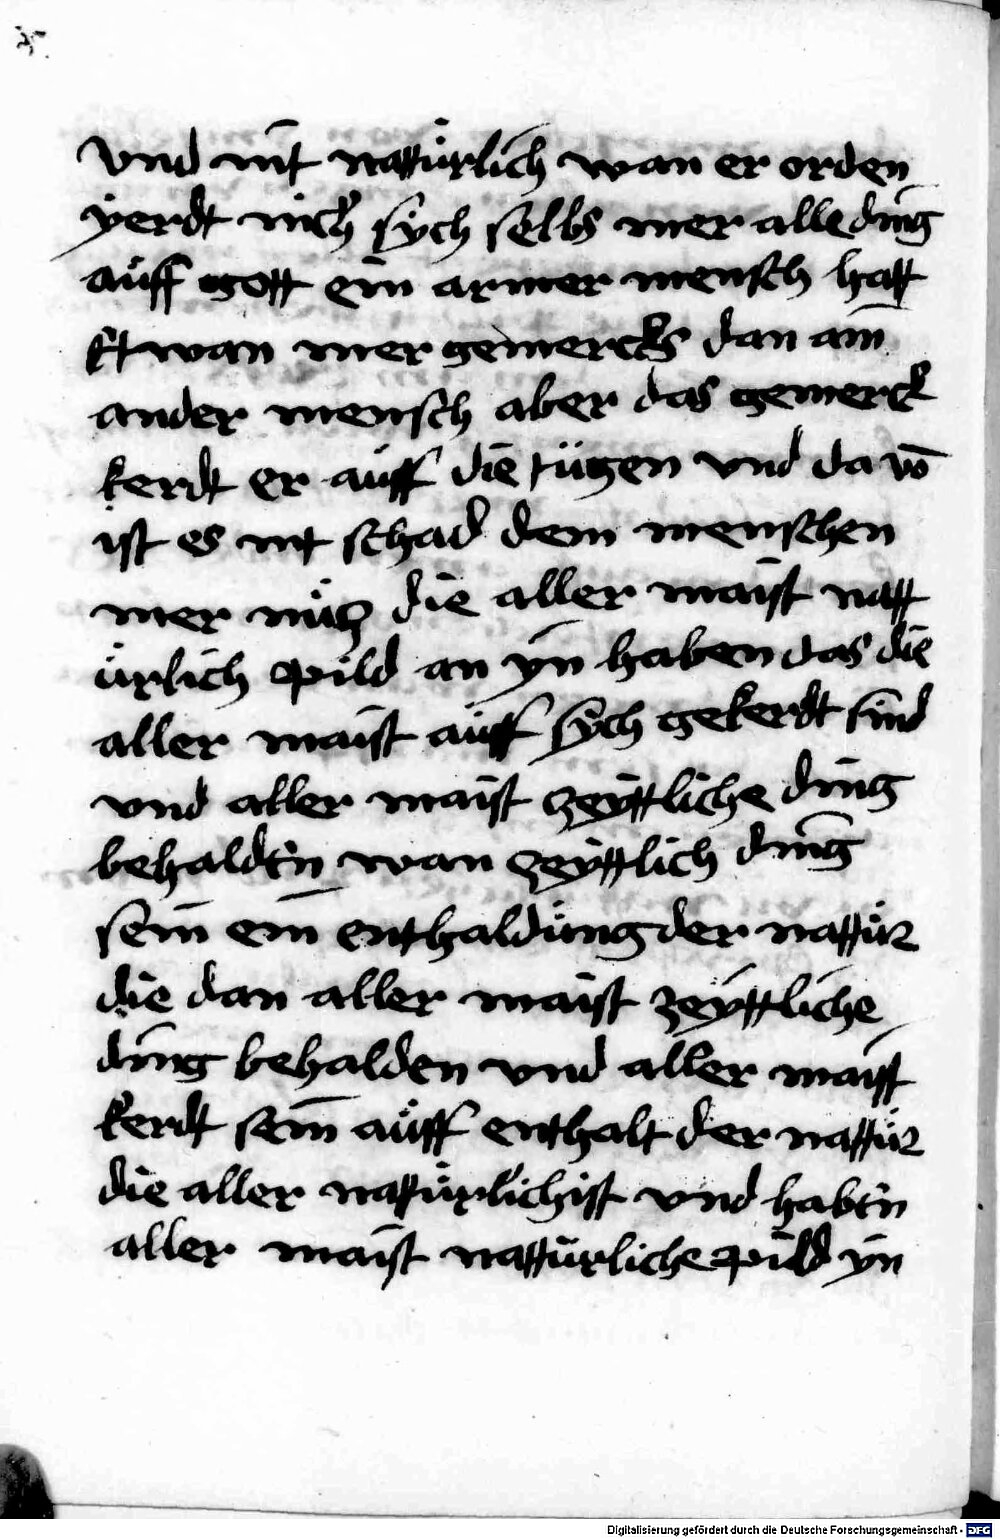 vnd nit nattürlich wan er orden
yerdt nich sych selbs mer alle ding
auff gott ein armer mensch hatt
ettwan mer gemercks dan ain
ander mensch aber das gemerck
kerdt er auff die tügen vnd da vō
ist es nit schad dem menschen
mer nücz die aller maist natt
ürlich pild an yn haben das die
aller maist auff sych gekerdt sind
vnd aller maist zeyttliche ding
behaldtn wan zeyttlich ding
sein ein enthaldung der nattür
die dan aller maist zeyttliche
ding behalden vnd aller maist
kerdt sein auff enthalt der nattür
die aller nattürlichist vnd habtn
aller maist nattürliche pild yn
Digitalisierung gefördert durch die Deutsche Forschungsgemeinschaft - DFG